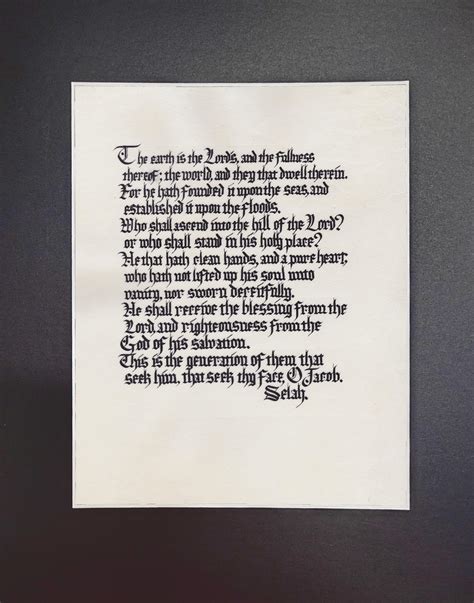 The earth is the Lord's, and the fullness
thereof; the world, and they that dwell therein.
For he hath founded it upon the seas, and
established it upon the floods.
Who shall ascend into the hill of the Lord?
or who shall stand in his holy place?
He that hath clean hands, and a pure heart;
who hath not lifted up his soul unto
vanity, nor sworn deceitfully.
He shall receive the blessing from the
Lord, and righteousness from the
God of his salvation.
This is the generation of them that
seek him, that seek thy face, O Jacob.
Selah.